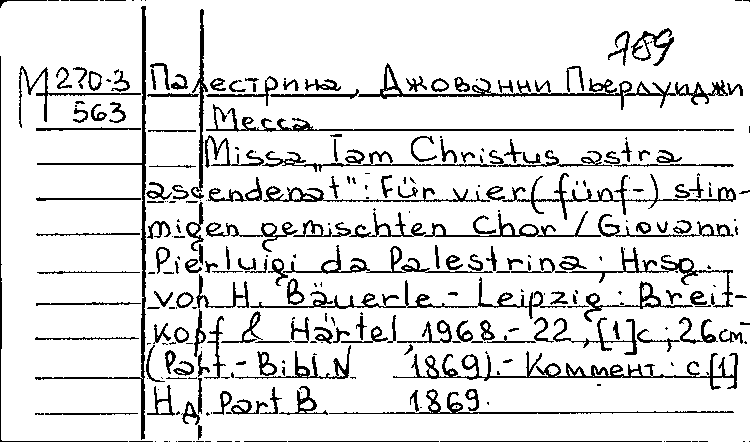 789
М 270-3 Палестрина, Джованни Пьерлуиджи
563 Месса
Missa „Iam Christus astra
ascenderat": Für vier (fünf-) stim-
migen gemischten Chor / Giovanni
Pierluigi da Palestrina; Hrsg.
von H. Bäuerle.- Leipzig: Breit-
kopf & Härtel, 1968.- 22, [1]c; 26см.-
(Part.-Bibl. N 1869).- Коммент.: с.[1]
Н.д. Part B. 1869.